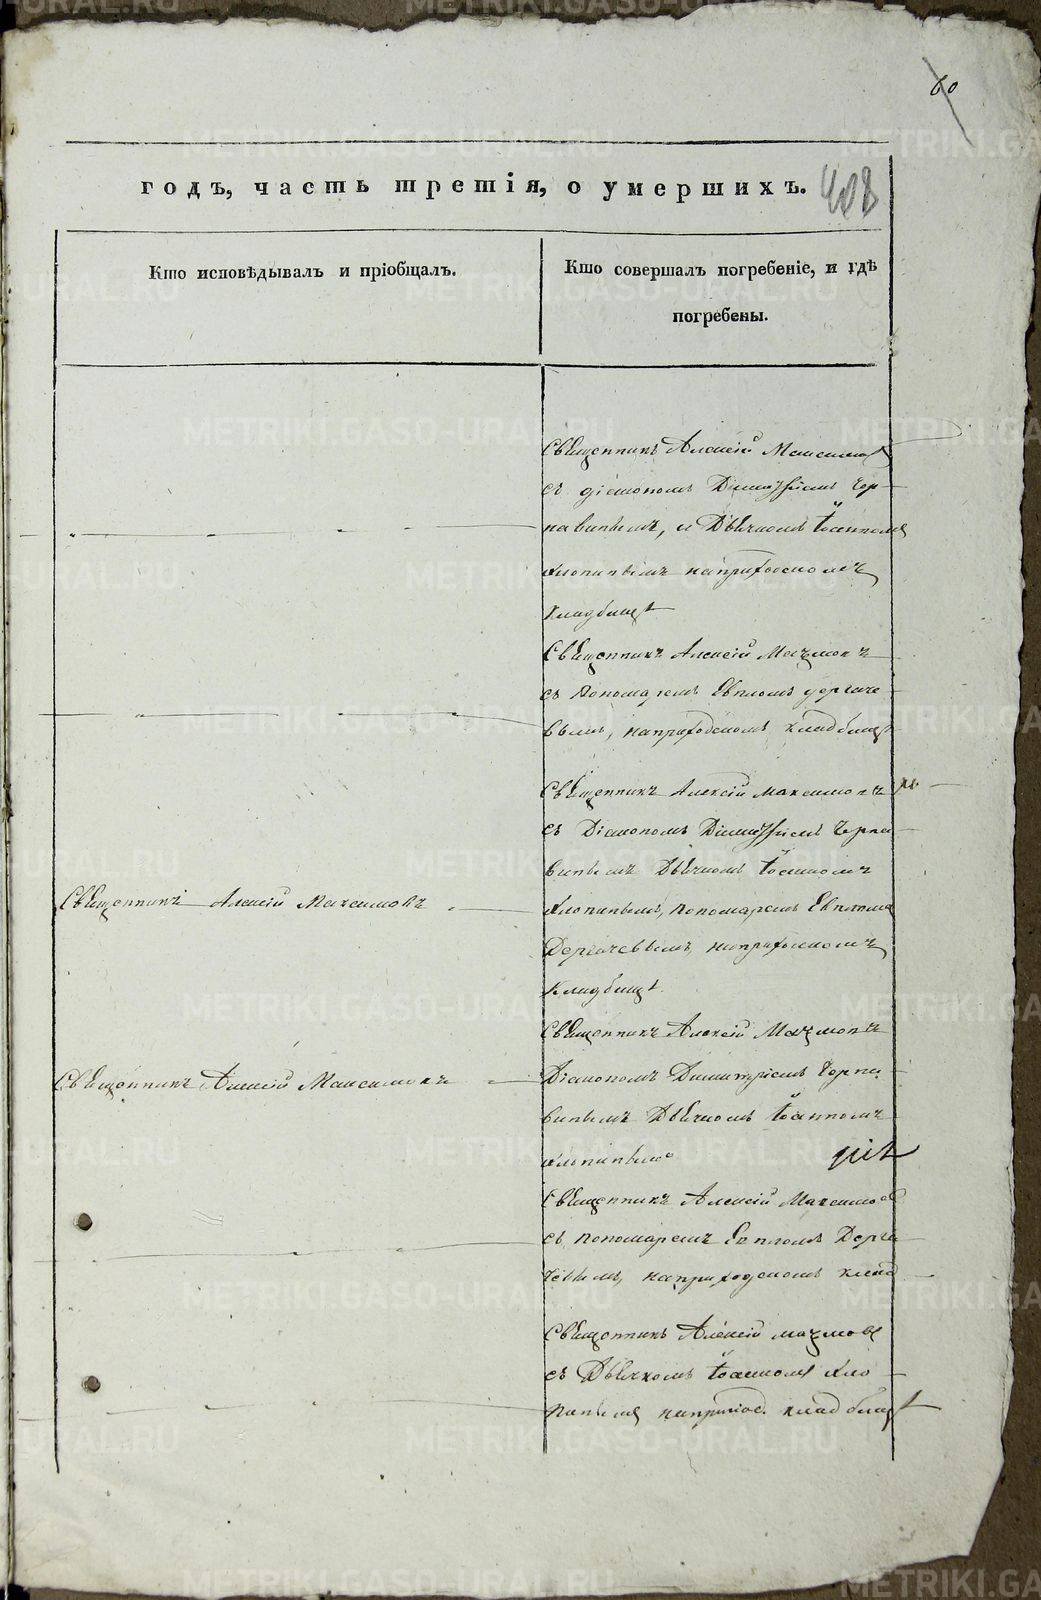 60
годъ, часть третія, о умершихъ.
408
Кто исповѣдывалъ и пріобщалъ.
Кто совершалъ погребеніе, и гдѣ
погребены.
Священникъ Алексій Максимов
съ діакономъ Димитріемъ Чер-
навинымъ, и Дьячкомъ Іоанномъ
Клопинымъ на приходскомъ
кладбищѣ
Священникъ Алексій Махимовъ
съ пономаремъ Евпломъ Дергаче-
вымъ, на приходскомъ кладбищѣ
Священникъ Алексій Максимовъ
съ Діакономъ Димитріемъ Черна-
винымъ Дьячкомъ Іоанномъ
Священникъ Алексій Максимовъ
Клопинымъ, пономаремъ Евпломъ
Дергачевымъ, на приходскомъ
кладбищѣ.
Священникъ Алексій
Священникъ Алексій Максимовъ
Діакономъ Димитріемъ Черна-
винымъ Дьячкомъ Іоанномъ
Клопинымъ
Священникъ Алексій Максимов
съ пономаремъ Евпломъ Дерга-
чевымъ, на приходскомъ клад
Священникъ Алексій
съ Дьячкомъ Іоанномъ Кло-
пинымъ на приход. кладбищѣ
METRIKI.GASO-URAL.RU